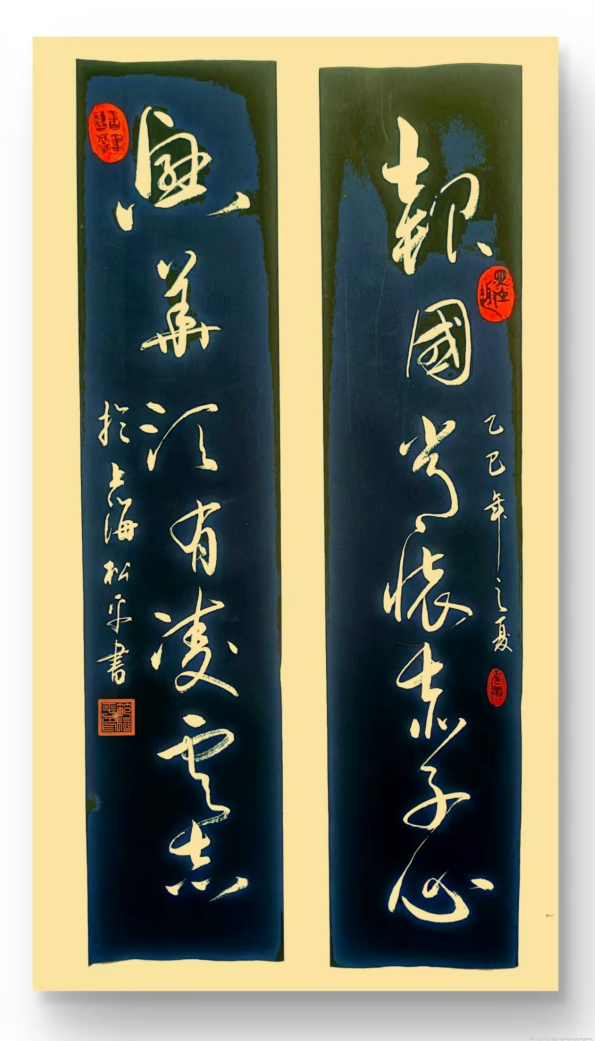 乙巳年之夏
報國常懷赤子心
興華須有凌雲志
於上海松平書